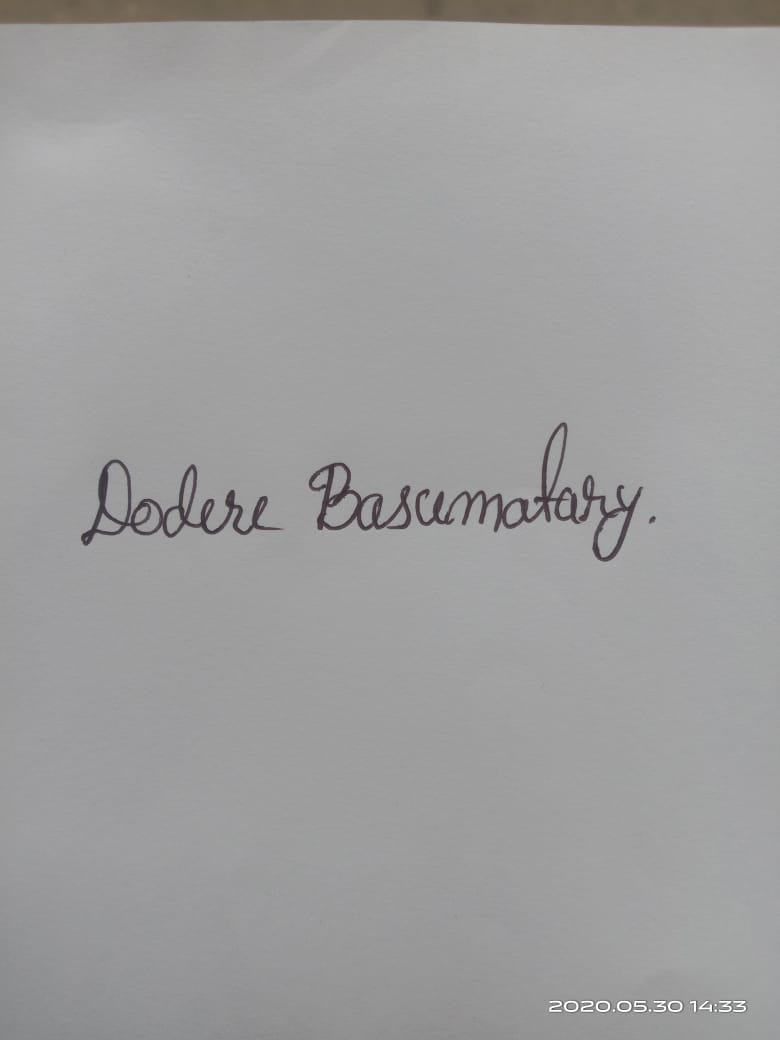 Dodere Basumatary.
2020.05.30 14:33